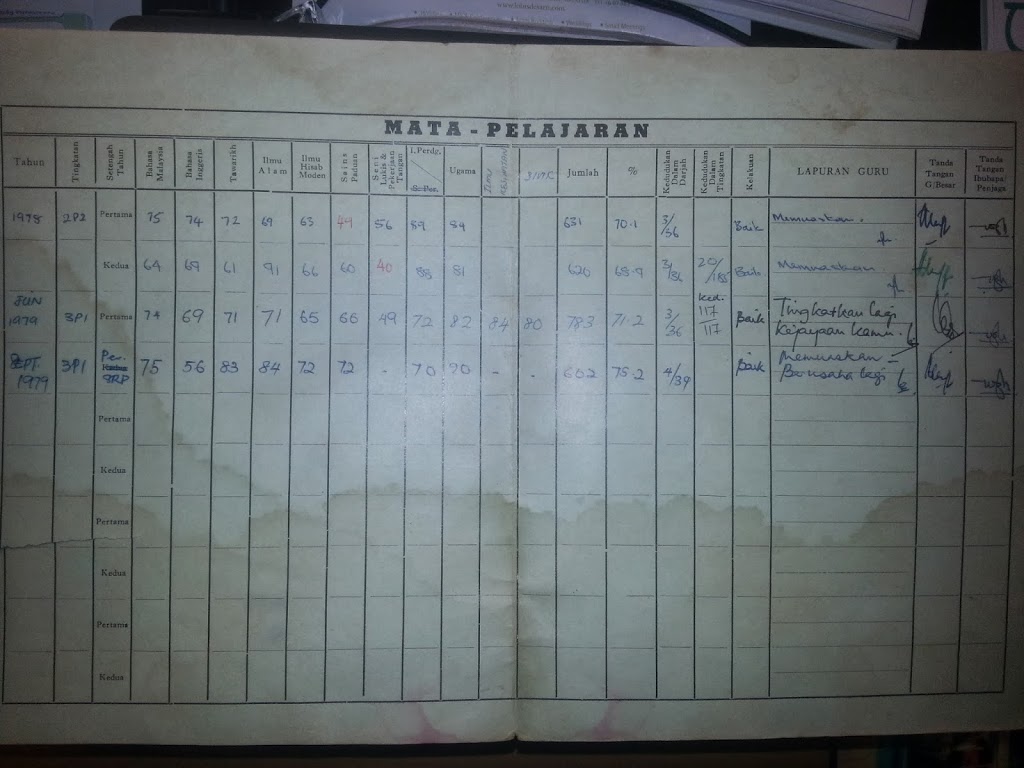 MATA - PELAJARAN
Tahun Tingkatan Setengah Tahun Bahasa Malaysia Bahasa Inggeris Tawarikh Ilmu Alam Ilmu Hisab Moden Sains Paduan Seni Lukis & Pekerjaan Tangan i. Perdg. Ugama Jumlah % Kedudukan Dalam Darjah Kedudukan Dalam Tingkatan Kelakuan LAPURAN GURU Tanda Tangan G/Besar Tanda Tangan Ibubapa/Penjaga
1978 2P2 Pertama 75 74 72 69 63 49 56 89 84 631 70.1 3/36 Baik Memuaskan.
Kedua 64 69 61 91 66 60 40 88 81 620 68.9 3/36 20/186 Baik Memuaskan
JUN 1979 3P1 Pertama 74 69 71 71 65 66 49 72 82 84 80 783 71.2 3/36 ked. 117/117 Baik Tingkatkan lagi
kejayaan kamu.
SEPT. 1979 3P1 Per. SRP 75 56 83 84 72 72 - 70 90 - - 602 75.2 4/39 Baik Memuaskan -
Berusaha lagi
Pertama
Kedua
Pertama
Kedua
Pertama
Kedua